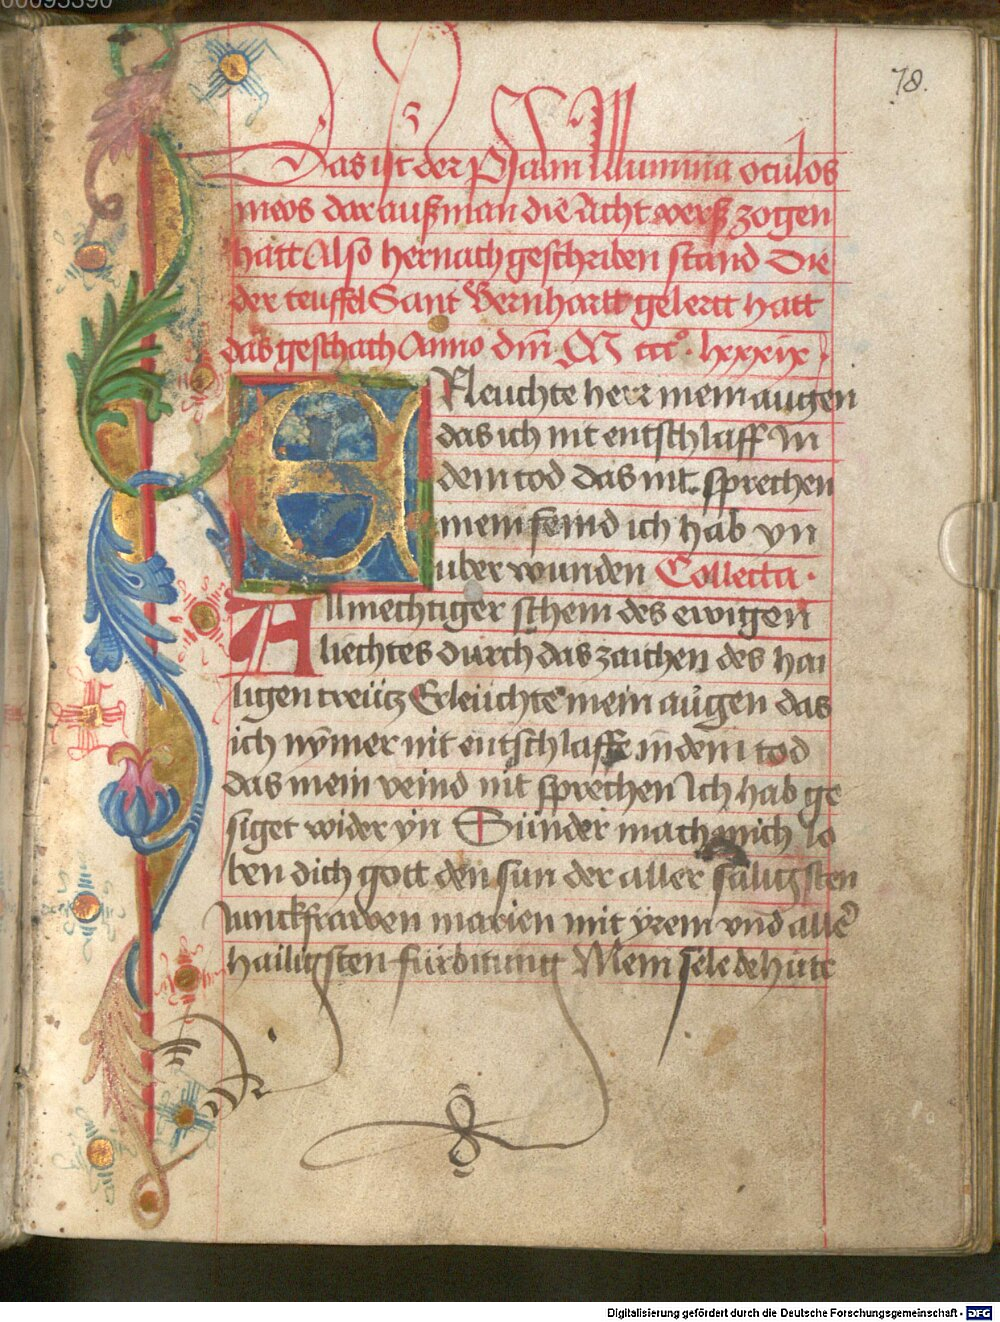 00095390
78.
Das ist der Psalm Illumina oculos
meos dar außman die Acht verß zogen
hatt Also hernach geschriben stand Die
der teuffel Sant Bernhartt gelertt hatt
das geschach Anno dm̄ M ccc° lxxxix.
ERleuchte herr mein augen
das ich nit entschlaff In
dem tod das nit sprechen
mein feind ich hab yn
uber wunden Collecta.
Allmechtiger schein des ewigen
liechtes durch das zaichen des hai
ligen creütz Erleüchte mein augen das
ich nymer nit entschlaffe in dem tod
das mein veind nit sprechen Ich hab ge
siget wider yn Sünder mach mich lo
ben dich gott den sun der aller säligsten
iunckfrawen marien mit yrem vnd alle
hailigsten fürbitung Mein sele behüte
Digitalisierung gefördert durch die Deutsche Forschungsgemeinschaft - DFG